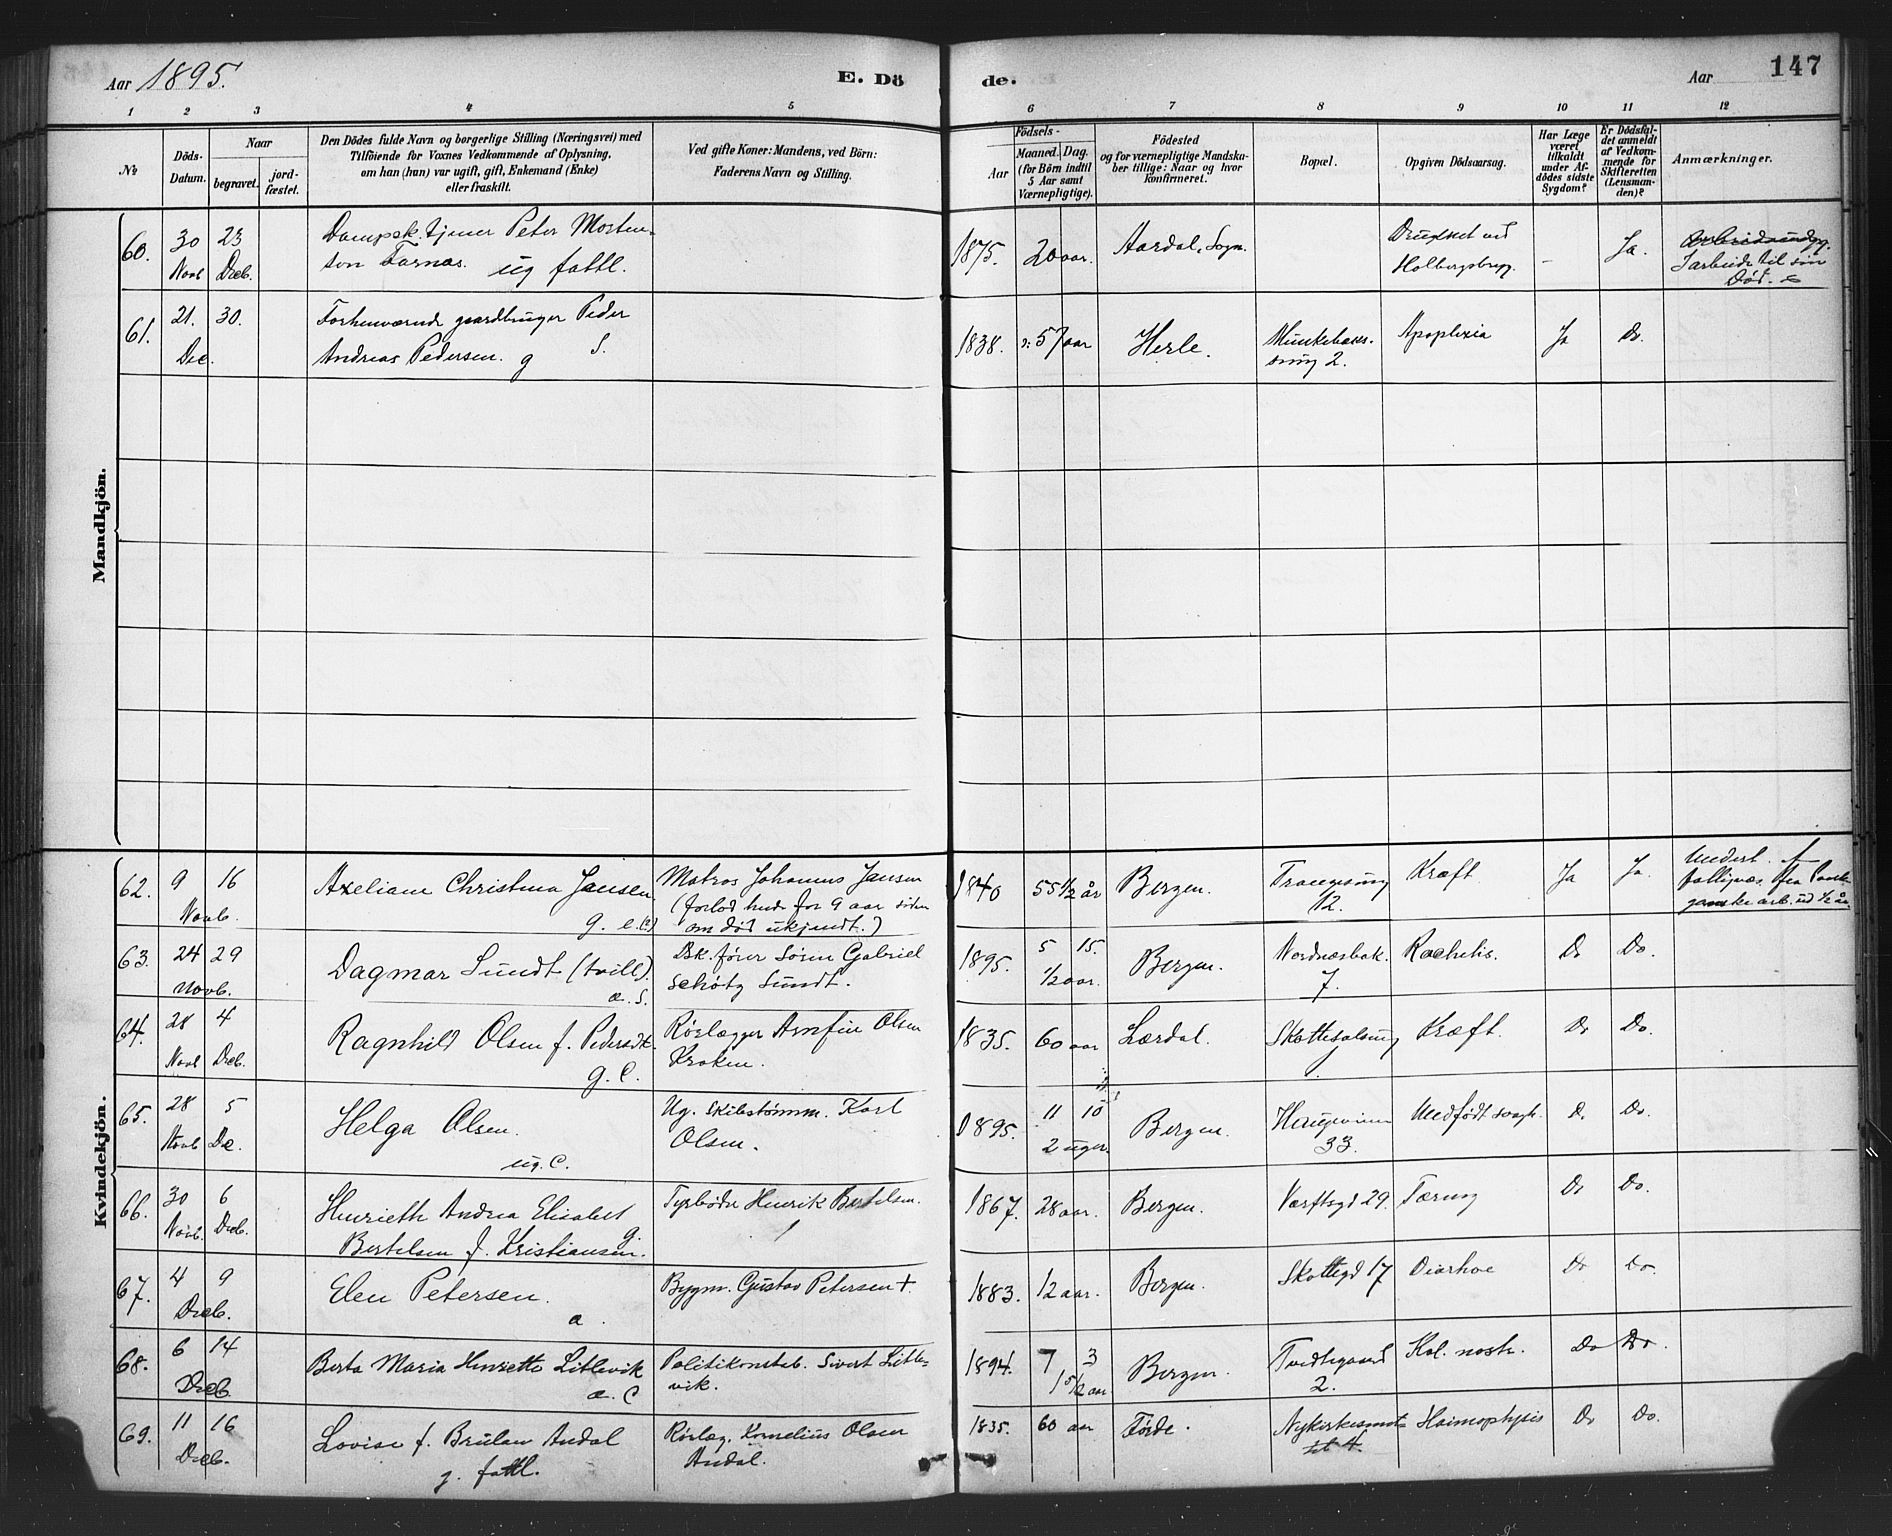 Aar 1895.
E. Dö
de.
Aar
147
1 2 3 4 5 6 7 8 9 10 11 12
№
Döds-Datum.
Naar
begravet.
jord-fæstet.
Den Dödes fulde Navn og borgerlige Stilling (Næringsvei) med
Tilföiende for Voxnes Vedkommende af Oplysning,
om han (hun) var ugift, gift, Enkemand (Enke)
eller fraskilt.
Ved gifte Koner: Mandens, ved Börn:
Faderens Navn og Stilling.
Födsels-
Aar
Maaned. Dag.
(for Börn indtil
5 Aar samt
Værnepligtige).
Födested
og for værnepligtige Mandska-
ber tillige: Naar og hvor
konfirmeret.
Bopæl.
Opgiven Dödsaarsag.
Har Læge
været
tilkaldt
under Af-
dödes sidste
Sygdom?
Er Dödsfal-
det anmeldt
af Vedkom-
mende for
Skifteretten
(Lensman-
den)?
Anmærkninger.
Mandkjön.
60. 30 Novb 23 Dceb. Dampsk. tjener Peter Morten-
sen Farnæs. ug fattl.
1875. 20 aar. Aardal, Sogn. Druknet ved
Holbergsbrygg. – Ja.
I arbeide til sin
Død.
61. 21. Dec. 30. Forhenværende gaardbruger Peder
Andreas Pedersen. g S.
1838. 57 aar Herle. Munkebæks-
smug 2. Apoplexia Ja Do.
Kvindekjön.
62. 9 Novb. 16 Axeliane Christina Jansen
g. e.(?)
Matros Johannes Jansen
(forlod hende for 9 aar siden
om død ukjendt.)
1840 55 1/2 år Bergen. Trangesmug
12. Kræft Ja Ja. Underst. af
fattigvæs.
ganske arb. ud 1/2 år
63. 24 Novb. 29 Dagmar Sundt (tvill).
æ. S.
Dsk. fører Søren Gabriel
Schøtz Sundt.
1895. 5 15. 1/2 aar. Bergen. Nordnæsbak.
7. Rachitis. Do Do.
64. 28 Novb 4 Dceb. Ragnhild Olsen f. Pedersdt.
g. C.
Rørlægger Arnfin Olsen
Kroken.
1835. 60 aar Lærdal. Skottesalsmug Kræft. Do Do.
65. 28 Novb 5 Dec. Helga Olsen.
ug. C.
Ug. skibstømm. Karl
Olsen.
1895. 11 10 2 uger. Bergen. Haugeveien
33. Medfødt svagh. Do Do.
66. 30 Novb. 6 Dceb. Henriette Andrea Elisabet
Bertelsen f. Kristiansen. g.
Fyrbøder Henrik Bertelsen.
1867. 28 aar. Bergen. Værftsgd 29. Tæring Do Do.
67. 4 Dceb. 9 Elen Petersen.
a.
Bygm. Gustav Petersen +.
1883. 12 aar. Bergen. Skottegd 17 Diarhoe Do Do.
68. 6 Dceb. 14 Berta Maria Henriette Litlevik
æ. C
Politikonsteb. Sivert Litle-
vik.
1894. 7 3 1 5/12 aar Bergen. Tvedtegaard
2. Kol. nostr. Do Do.
69. 11 Dceb. 16 Lovise f. Brulan Andal
g. fattl.
Rørlæg. Kornelius Olsen
Andal.
1835. 60 aar Førde. Nykirkesmut
4. Haimophysis Do Do.